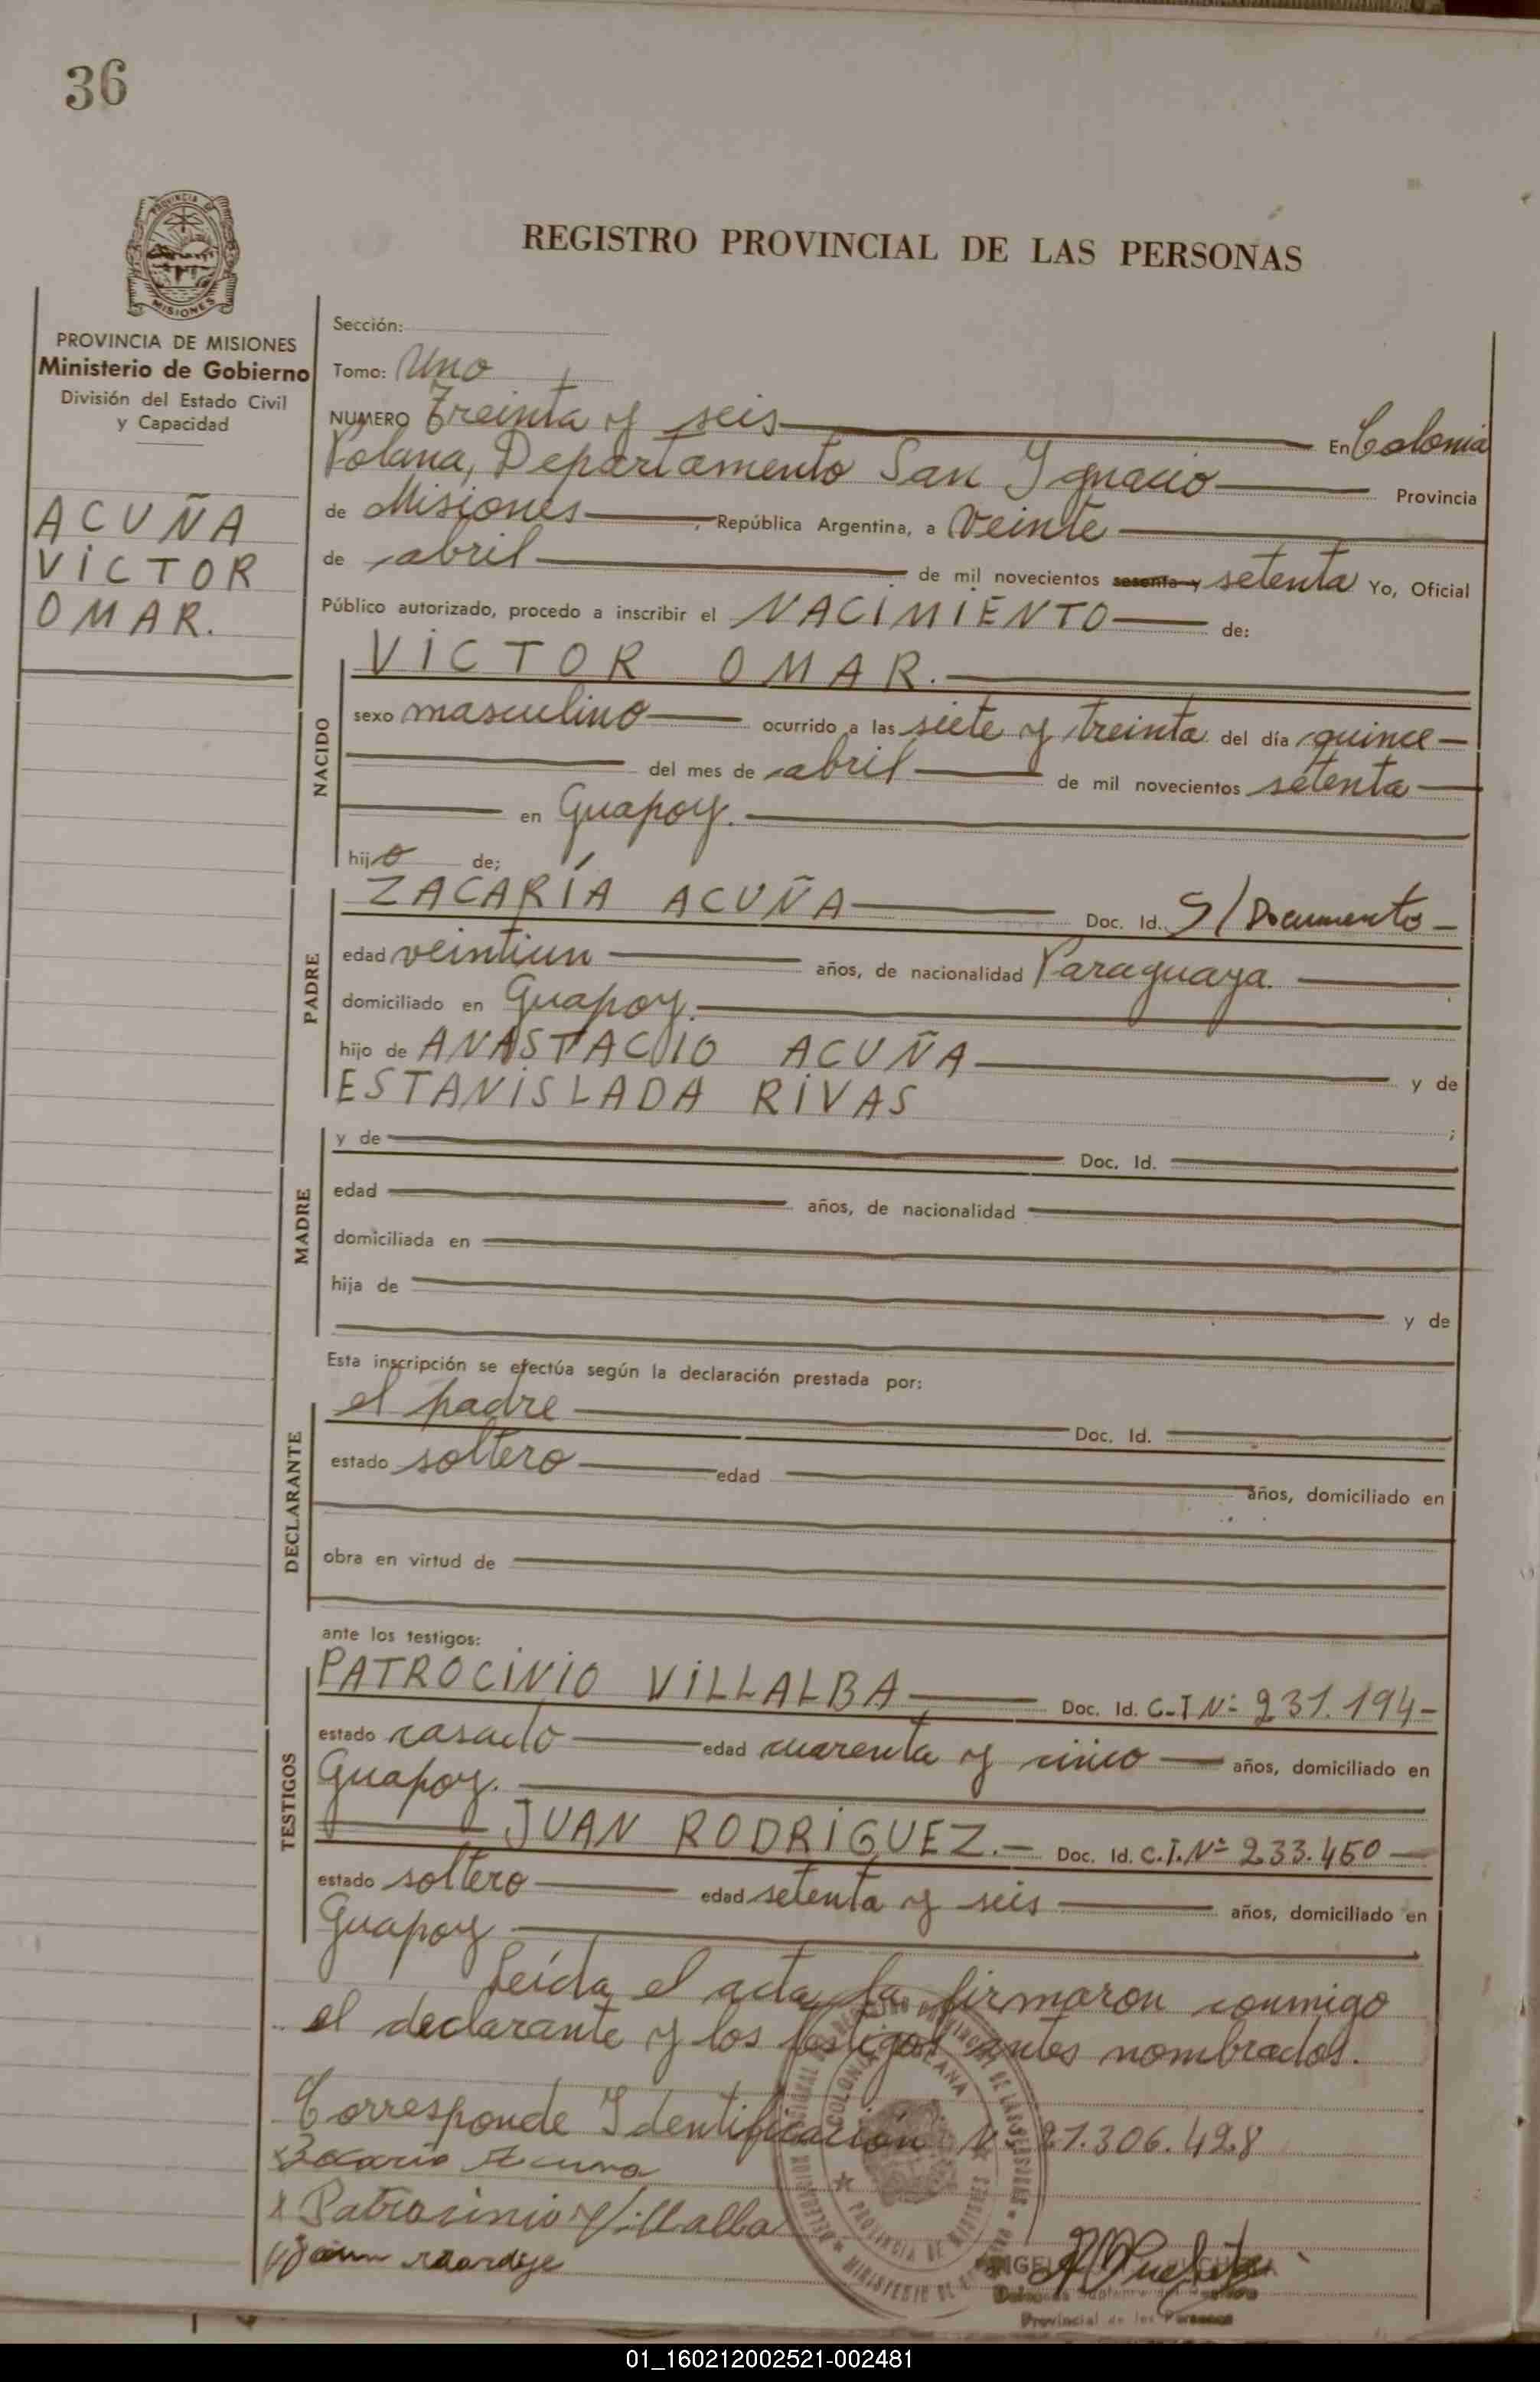 36
PROVINCIA DE
MISIONES
REGISTRO PROVINCIAL DE LAS PERSONAS
PROVINCIA DE MISIONES
Ministerio de Gobierno
División del Estado Civil
y Capacidad
ACUÑA
VICTOR
OMAR.
Sección:
Tomo: Uno
NUMERO Treinta y seis En Colonia
Polana, Departamento San Ignacio Provincia
de Misiones, República Argentina, a veinte
de abril de mil novecientos sesenta y setenta Yo, Oficial
Público autorizado, procedo a inscribir el NACIMIENTO de:
NACIDO
VICTOR OMAR.
sexo masculino ocurrido a las siete y treinta del día quince
del mes de abril de mil novecientos setenta
en Guapoy.
hijo de:
PADRE
ZACARÍA ACUÑA Doc. Id. S/Documento
edad veintiun años, de nacionalidad Paraguaya.
domiciliado en Guapoy.
hijo de ANASTACIO ACUÑA y de
ESTANISLADA RIVAS ;
MADRE
y de Doc. Id.
edad años, de nacionalidad
domiciliada en
hija de y de
Esta inscripción se efectúa según la declaración prestada por:
DECLARANTE
el padre Doc. Id.
estado soltero edad años, domiciliado en
obra en virtud de
ante los testigos:
TESTIGOS
PATROCINIO VILLALBA Doc. Id. C.I Nº 231.194
estado casado edad cuarenta y cinco años, domiciliado en
Guapoy.
JUAN RODRIGUEZ. Doc. Id. C.I. Nº 233.450
estado soltero edad setenta y seis años, domiciliado en
Guapoy
Leída el acta la firmaron conmigo
el declarante y los testigos antes nombrados.
Corresponde Identificación Nº 21.306.428
Zacaria Acuna
x Patrocinio Villalba
COLONIA POLANA
PROVINCIA DE MISIONES
Provincial de las Personas
01_160212002521-002481